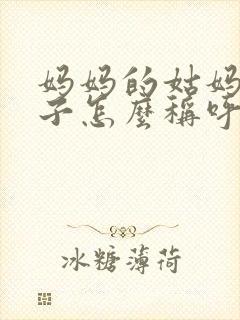 妈妈的姑妈
子怎麼稱呼
冰糖薄荷